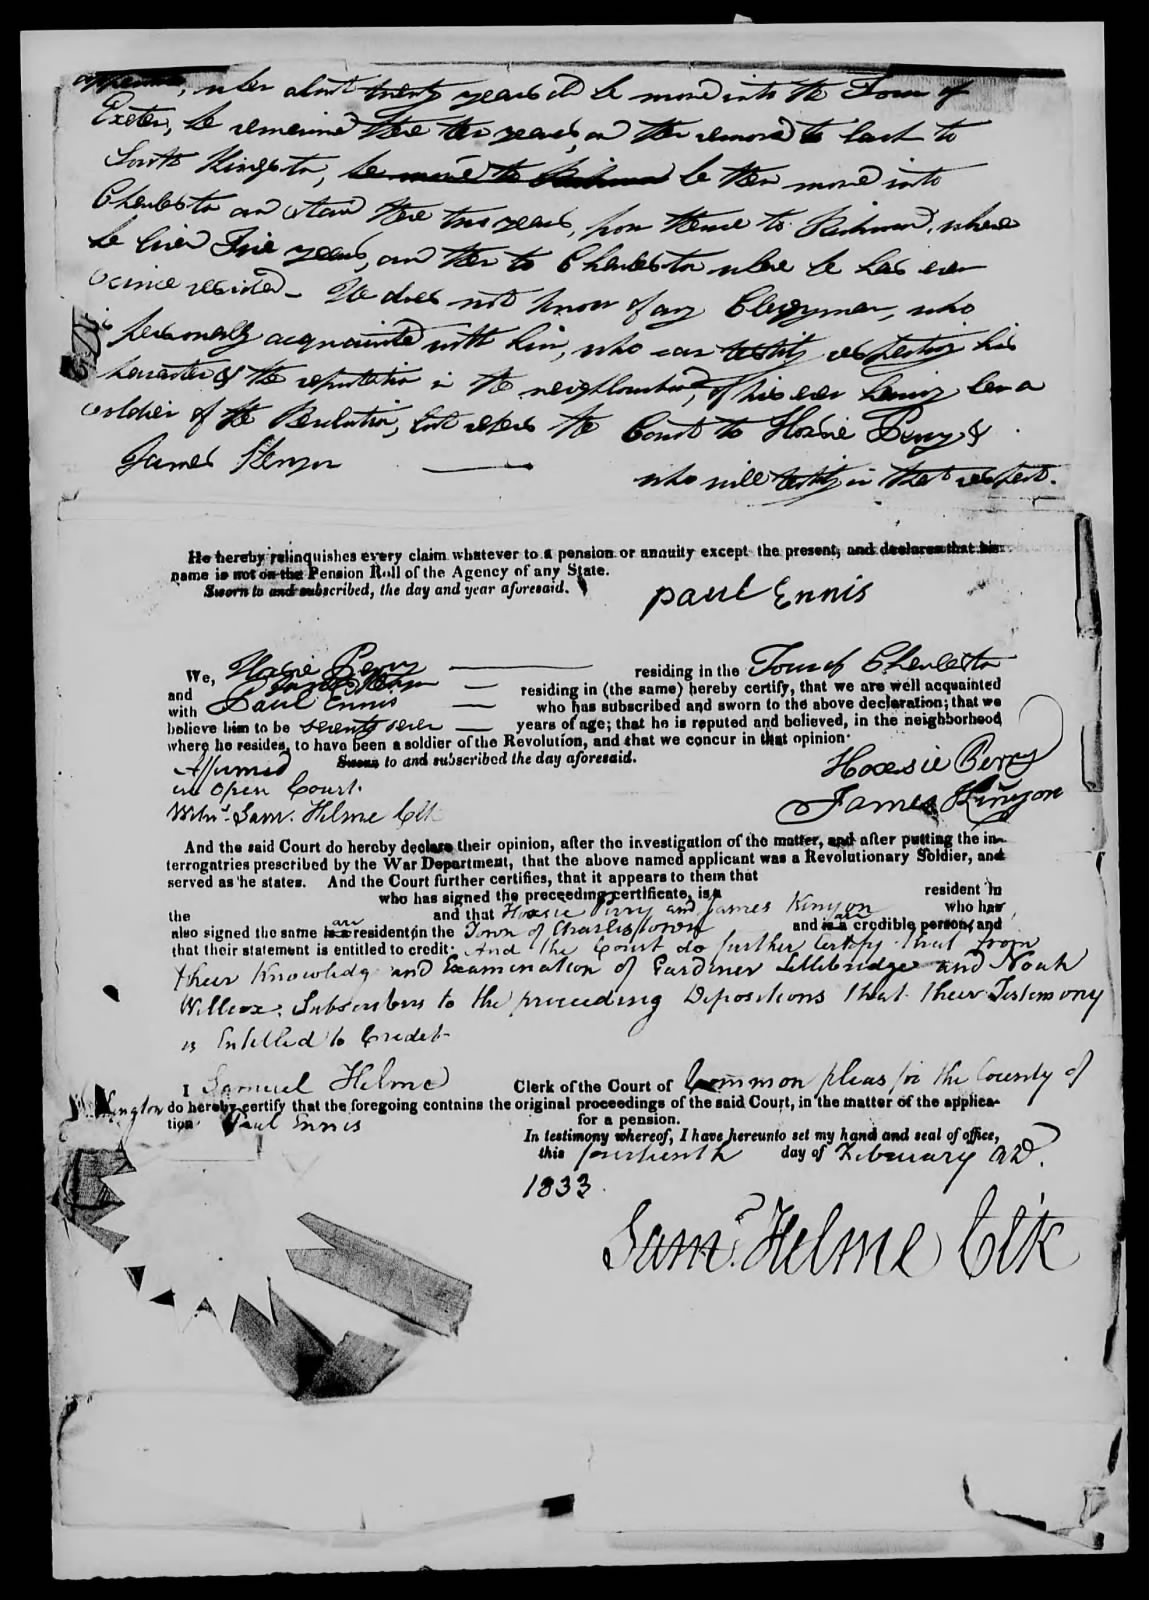 when about twenty years old he moved into the Town of
Exeter, he remained there ten years, and then removed to back to
South Kingston, he moved to Richmond he then moved into
Charlestown and staid there two years, from thence to Richmond, where
he lived Five years, and then to Charlestown where he has ever
since resided – He does not know of any Clergyman, who
is personally acquainted with him, who can testify respecting his
character & the reputation in the neighbourhood, of his ever having been a
soldier of the Revolution, but refers the Court to Hoxsie Perry &
James Kenyon —— who will testify in that respect.
He hereby relinquishes every claim whatever to a pension or annuity except the present, and declares that his
name is not on the Pension Roll of the Agency of any State.
Sworn to and subscribed, the day and year aforesaid.
Paul Ennis
We, Hoxsie Perry —— residing in the Town of Charlestown
and James Kenyon — residing in (the same) hereby certify, that we are well acquainted
with Paul Ennis — who has subscribed and sworn to the above declaration; that we
believe him to be seventy seven — years of age; that he is reputed and believed, in the neighborhood
where he resides, to have been a soldier of the Revolution, and that we concur in that opinion.
Affirmed Sworn to and subscribed the day aforesaid.
in Open Court. Hoxsie Perry
Witns. Sam. Helme Clk James Kinyon
And the said Court do hereby declare their opinion, after the investigation of the matter, and after putting the in-
terrogatries prescribed by the War Department, that the above named applicant was a Revolutionary Soldier, and
served as he states. And the Court further certifies, that it appears to them that
who has signed the preceeding certificate, is a resident in
the and that Hoxsie Perry and James Kinyon who has
also signed the same is a are resident in the Town of Charlestown and is a are credible person, and
that their statement is entitled to credit. And the Court do further Certify that from
their Knowledge and Examination of Gardiner Lillibridge and Noah
Willcox, Subscribers to the preceeding Depositions that their Testimony
is Entitled to Credit
I Samuel Helme Clerk of the Court of Common pleas for the County of
Washington do hereby certify that the foregoing contains the original proceedings of the said Court, in the matter of the applica-
tion Paul Ennis for a pension.
In testimony whereof, I have hereunto set my hand and seal of office,
this fourteenth day of February AD.
1833.
Sam. Helme Clk